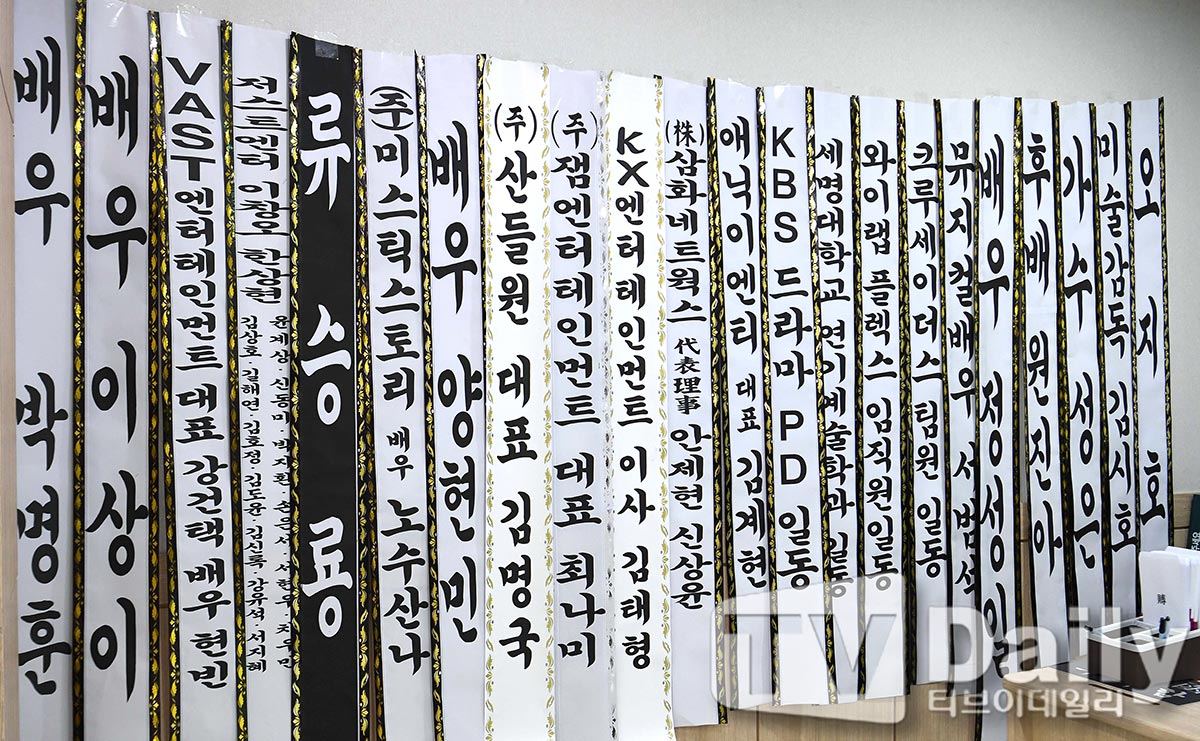 배우 박명훈
배우 이상이
VAST엔터테인먼트 대표 강건택 배우 현빈
저스트엔터 이창오 한상현
윤계상·신동미·박지환·손은서·서현우
김상호·김해연·김호정·김도윤·김신록·강유석·서지혜
류승룡
(주)미스틱스토리 배우 노수산나
배우 양현민
(주)산들원 대표 김명국
(주)잼엔터테인먼트 대표 최나미
KX엔터테인먼트 이사 김태형
(株)삼화네트웍스 代表理事 안제현 신상윤
애닉이엔티 대표 김계현
KBS 드라마 PD 일동
세명대학교 연기예술학과 일동
와이랩 플렉스 임직원일동
크루세이더스 팀원 일동
뮤지컬배우 서범석
배우 정성일
후배 원진아
가수 성은
미술감독 김시호
오지호
TV Daily
티브이데일리